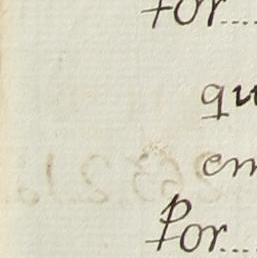 For....
qu
em
Por....